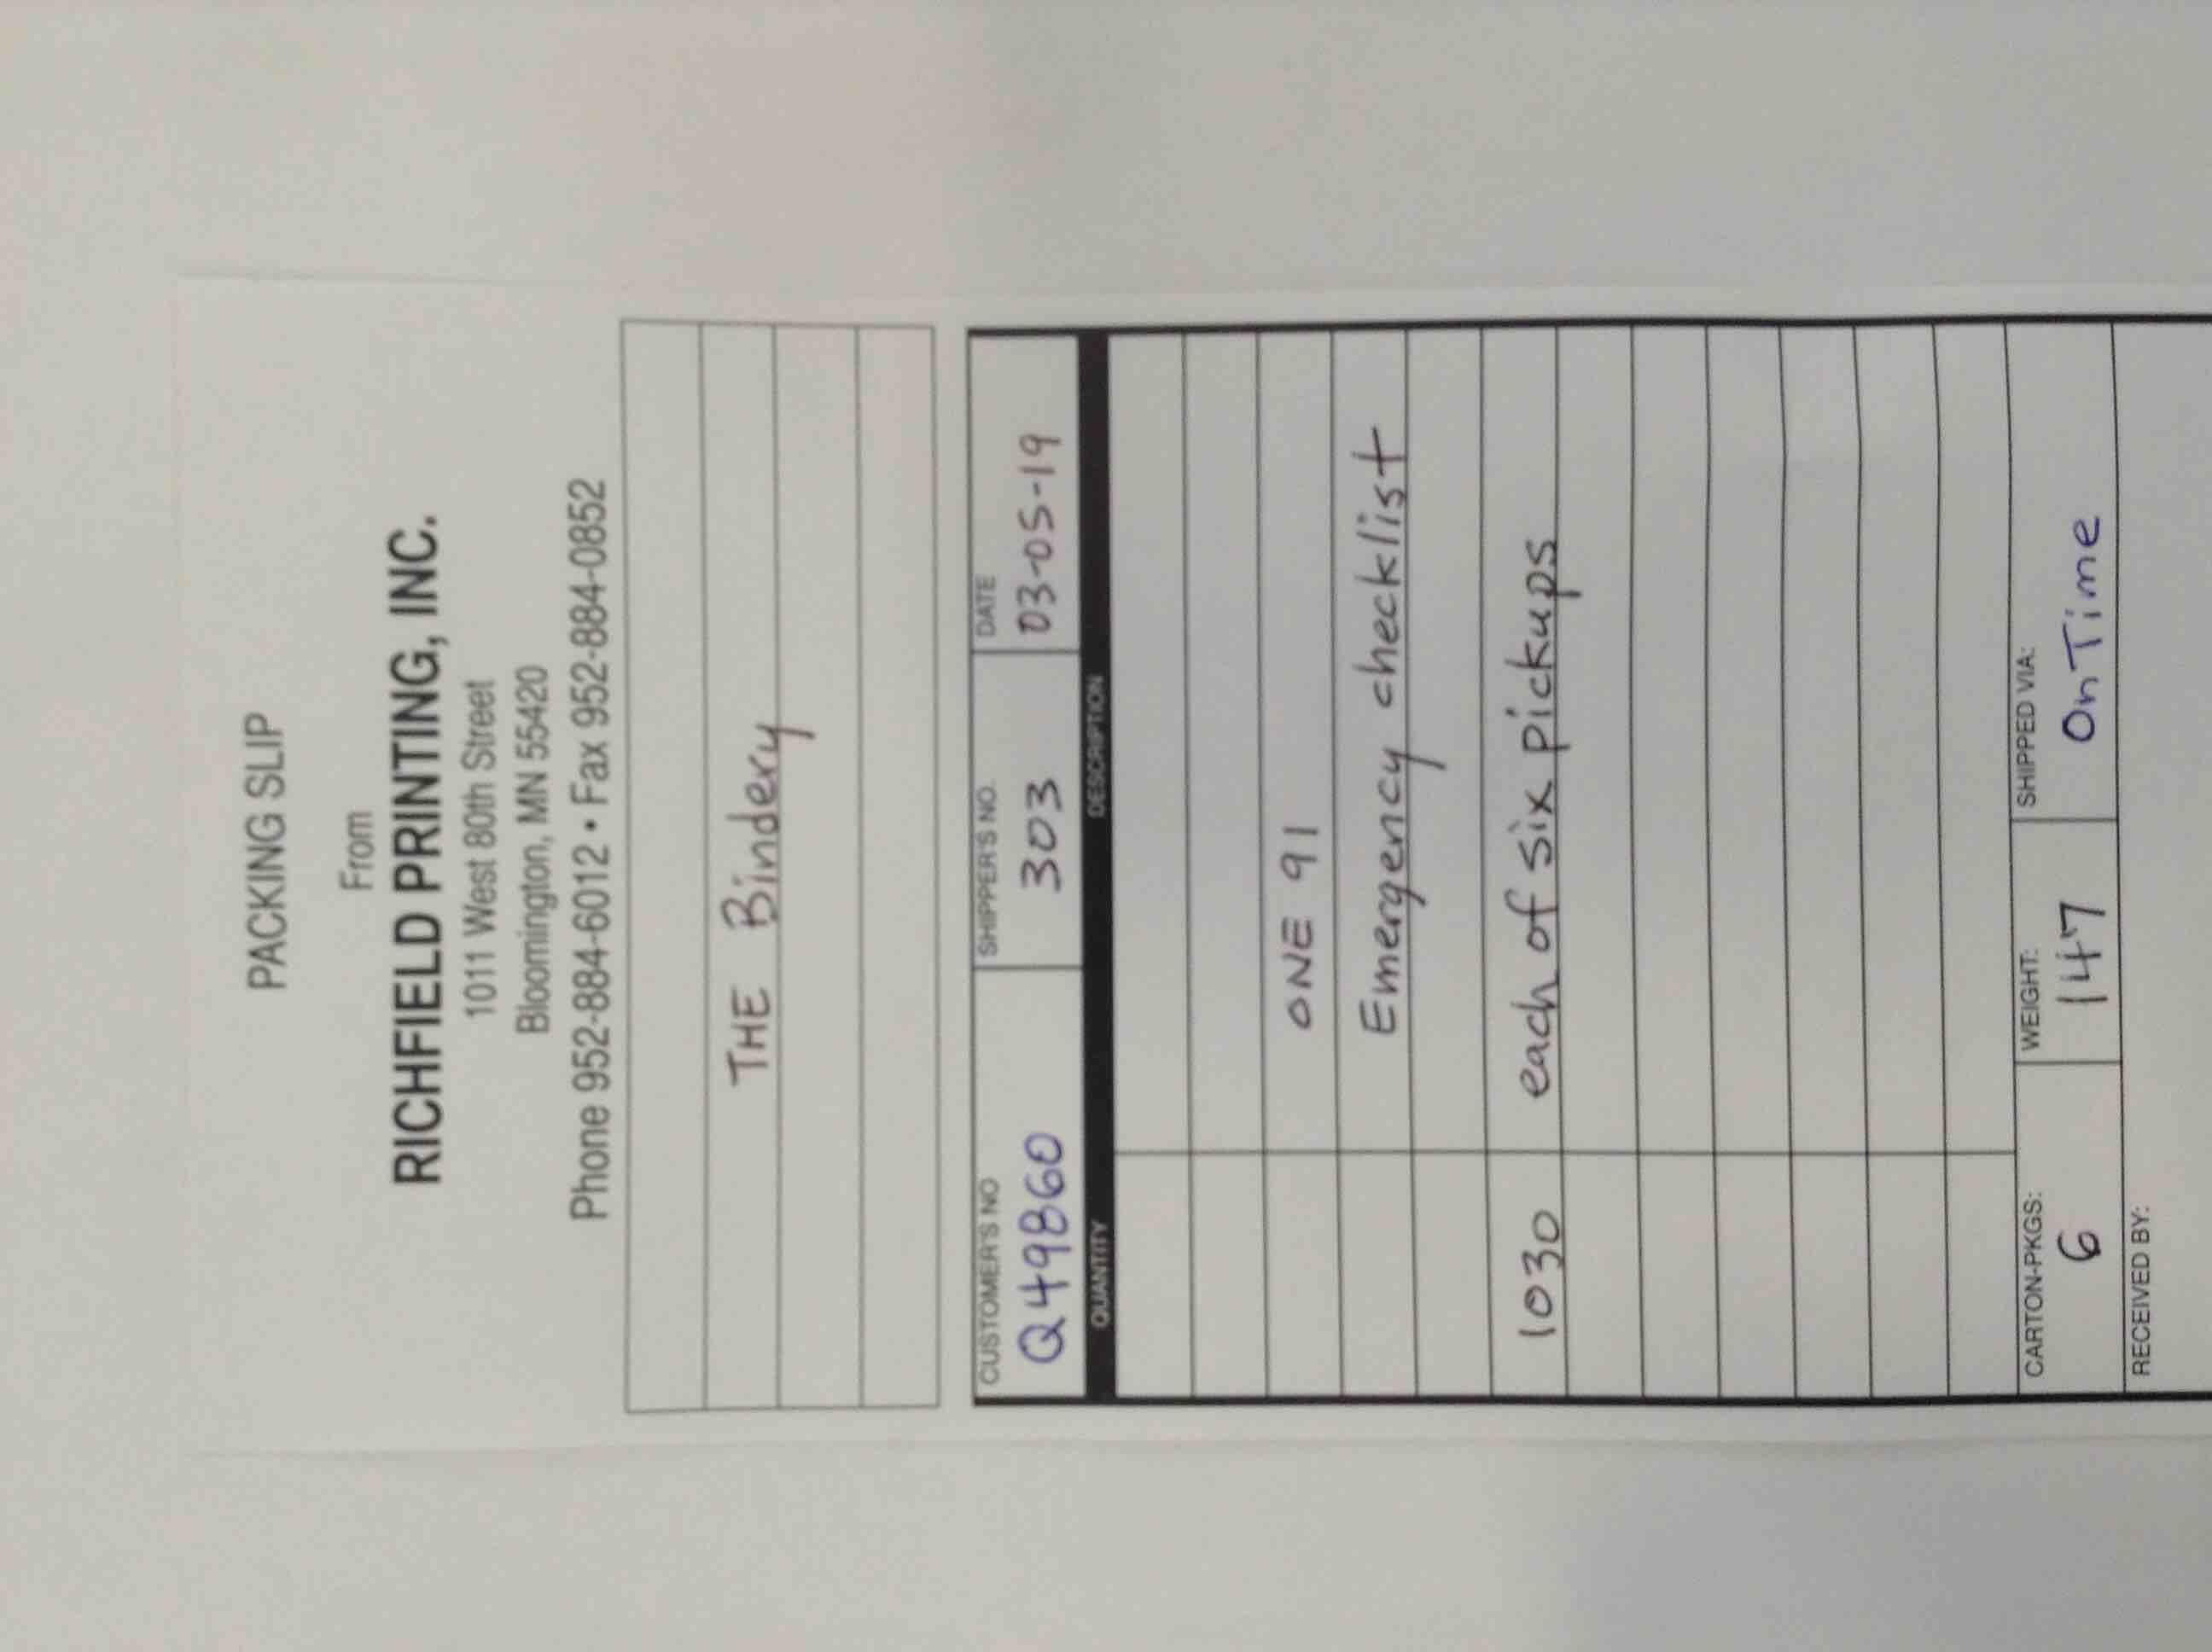 PACKING SLIP
From
RICHFIELD PRINTING, INC.
1011 West 80th Street
Bloomington, MN 55420
Phone 952-884-6012 • Fax 952-884-0852
THE Bindery
CUSTOMER'S NO SHIPPER'S NO. DATE
Q49860 303 03-05-19
QUANTITY DESCRIPTION
ONE 91
Emergency checklist
1030 each of six pickups
CARTON-PKGS: WEIGHT: SHIPPED VIA:
6 147 OnTime
RECEIVED BY: